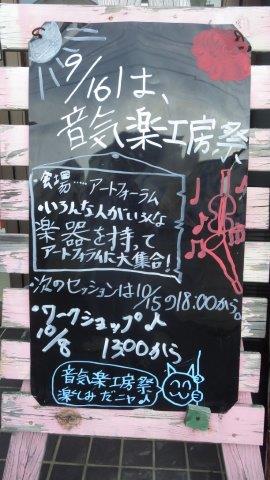 9/16は、
音気楽工房祭
・会場……アートフォーラム
・いろんな人がいろんな
楽器を持って
アートフォーラムに大集合!
・次のセッションは10/15の18:00から。
・ワークショップ♪
10/8 1300から
音気楽工房祭
楽しみだニャ♪